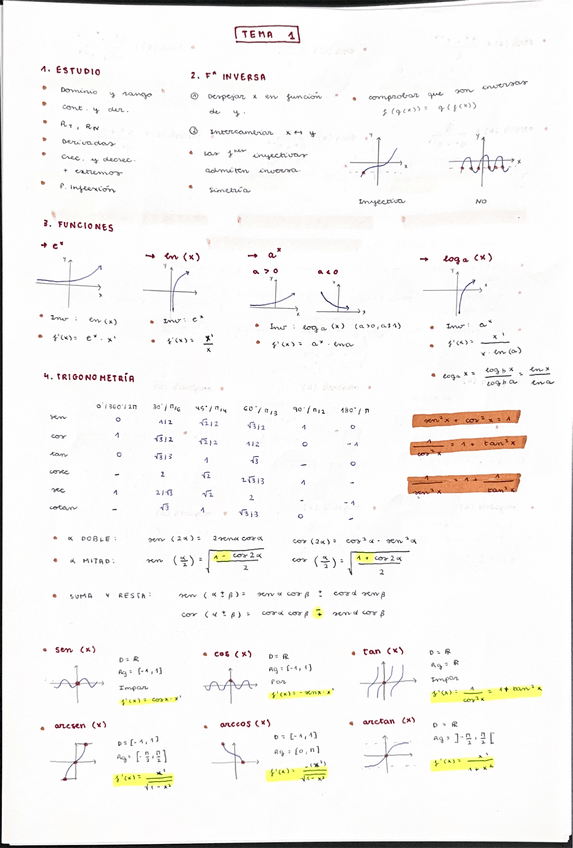 TEMA 1
1. ESTUDIO
• Dominio y rango
• cont. y der.
• RT, RN
• Derivadas
• Crec. y decrec.
+ extremos
• P. Inflexión
2. Fª INVERSA
① Despejar x en función
de y.
② Intercambiar x ↔ y
• Las fᵘⁿᵉˢ inyectivas
admiten inversa
• Simetría
• comprobar que son inversas
f(g(x)) = g(f(x))
y
x
Inyectiva
y
x
NO
3. FUNCIONES
→ eˣ
y
x
• Inv: ln(x)
• f'(x) = eˣ · x'
→ ln(x)
y
x
• Inv: eˣ
• f'(x) = x'/x
→ aˣ
a > 0
a < 0
• Inv: loga(x) (a>0, a≠1)
• f'(x) = aˣ · lna
→ loga(x)
y
x
• Inv: aˣ
• f'(x) = x'/(x · ln(a))
• loga x = logb x/logb a = lnx/lna
4. TRIGONOMETRÍA
0°/360°/2π 30°/π/6 45°/π/4 60°/π/3 90°/π/2 180°/π
sen 0 1/2 √2/2 √3/2 1 0
cos 1 √3/2 √2/2 1/2 0 -1
tan 0 √3/3 1 √3 - 0
cosec - 2 √2 2√3/3 1 -
sec 1 2/√3 √2 2 - -1
cotan - √3 1 √3/3 0 -
sen²x + cos²x = 1
1/cos²x = 1 + tan²x
1/sen²x = 1 + 1/tan²x
• α DOBLE: sen(2α) = 2senα cosα cos(2α) = cos²α - sen²α
• α MITAD: sen(α/2) = √((1 - cos2α)/2) cos(α/2) = √((1 + cos2α)/2)
• SUMA Y RESTA: sen(α ± β) = senα cosβ ± cosα senβ
cos(α ± β) = cosα cosβ ∓ senα senβ
• sen(x)
D = ℝ
Rg = [-1,1]
Impar
f'(x) = cosx · x'
• cos(x)
D = ℝ
Rg = [-1,1]
Par
f'(x) = -senx · x'
• tan(x)
D = ℝ
Rg = ℝ
Impar
f'(x) = 1/cos²x = 1 + tan²x
• arcsen(x)
D = [-1,1]
Rg = [-π/2, π/2]
f'(x) = x'/√(1-x²)
• arccos(x)
D = [-1,1]
Rg = [0,π]
f'(x) = -(x')/√(1-x²)
• arctan(x)
D = ℝ
Rg = ]-π/2, π/2[
f'(x) = x'/(1+x²)